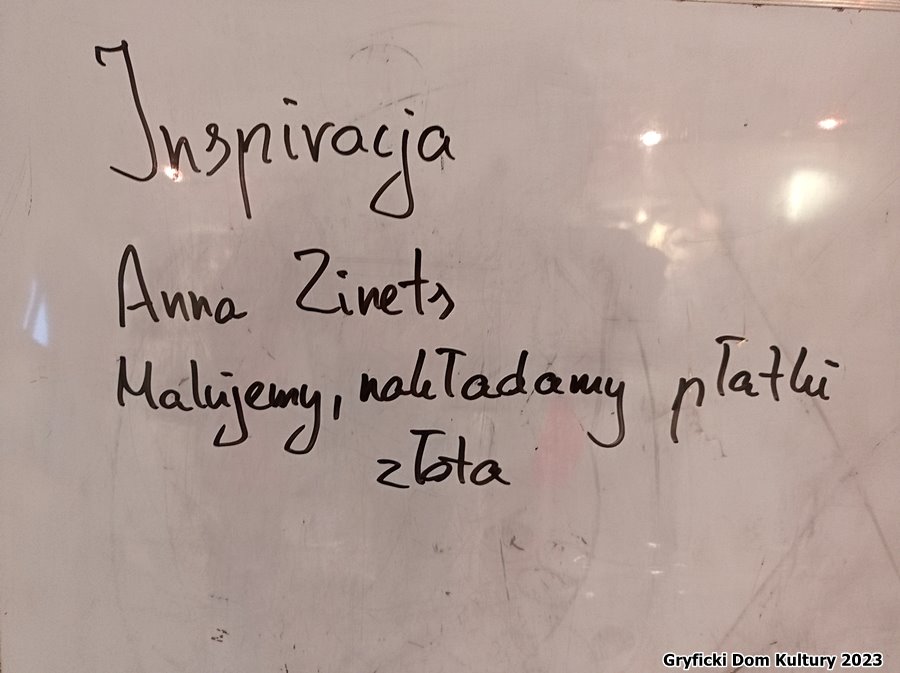 Inspiracja
Anna Zinets
Malujemy, nakładamy płatki
złota
Gryficki Dom Kultury 2023